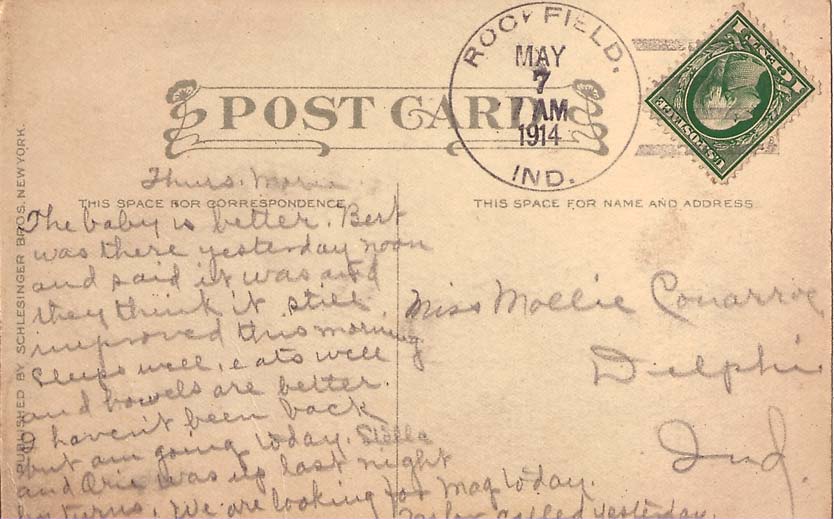 ROCKFIELD.
MAY
7
7 AM
1914
IND.
U.S. POSTAGE
POST CARD
THIS SPACE FOR CORRESPONDENCE
THIS SPACE FOR NAME AND ADDRESS
PUBLISHED BY SCHLESINGER BROS. NEW YORK.
Thurs. Morn
The baby is better. Bert
was there yesterday noon
and said it was and
they think it still
improved this morning.
Sleeps well, eats well
and bowels are better.
I haven't been back
but am going today. Stella
and Orie was up last night
by turns. We are looking for Mag today.
called yesterday.
Miss Mollie Conarroe
Delphi
Ind.